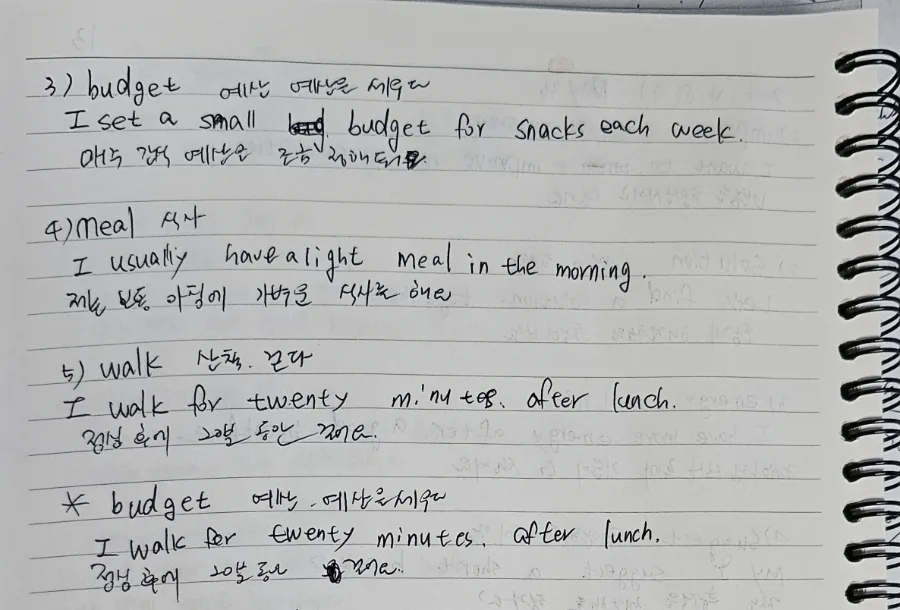 3) budget 예산 예산을 세우다
I set a small budget for snacks each week.
매주 간식 예산을 조금 정해둬요.
4) meal 식사
I usually have a light meal in the morning.
저는 보통 아침에 가벼운 식사를 해요
5) walk 산책. 걷다
I walk for twenty minutes. after lunch.
점심 후에 20분 동안 걸어요.
* budget 예산. 예산을 세우다
I walk for twenty minutes. after lunch.
점심 후에 20분 동안 걸어요.